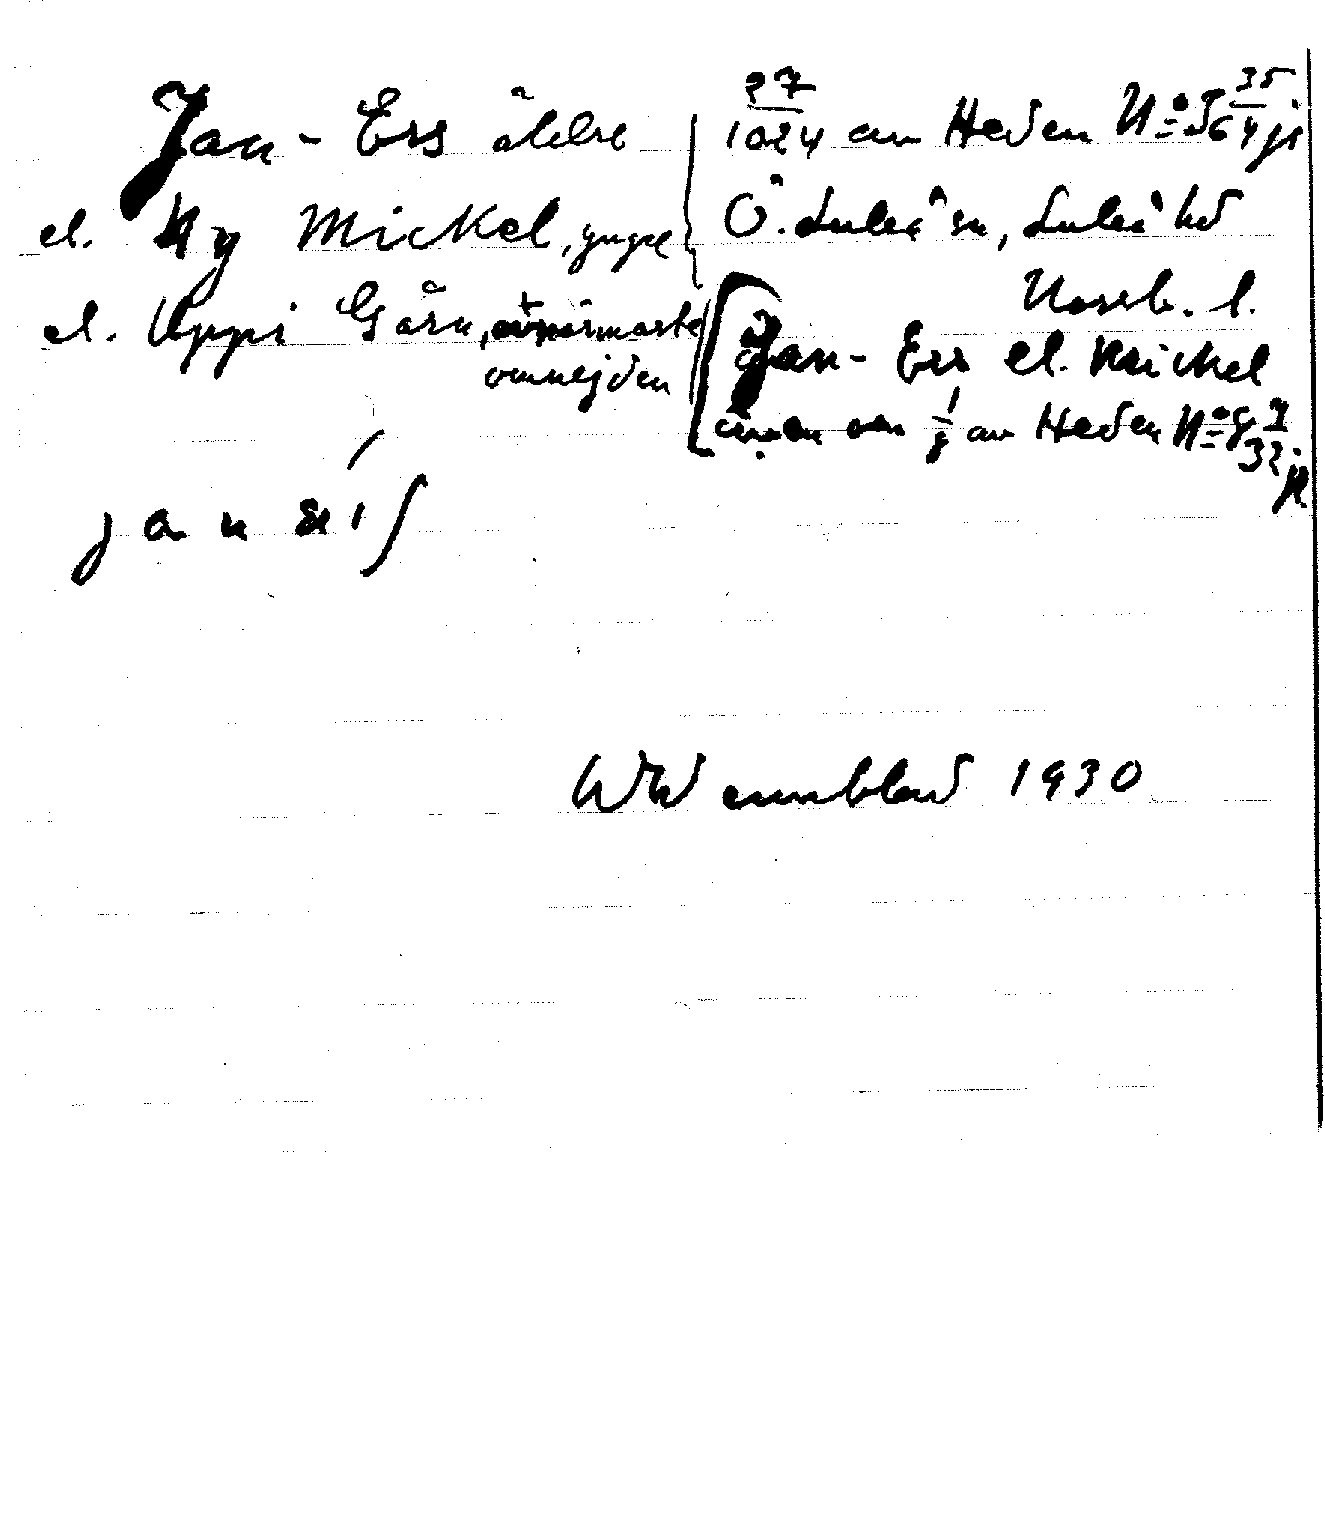 Jan-Ers äldre
el. Ny Mickel, yngre
el. Uppi Gårn, i närmaste
omnejden
27/1024 av Heden No 5 35/64 jr
Ö. Luleå sn, Luleå hd
Norrb. l.
Jan-Ers el. Mickel
av 1/8 av Heden No 8 7/32 jr
WWennblad 1930